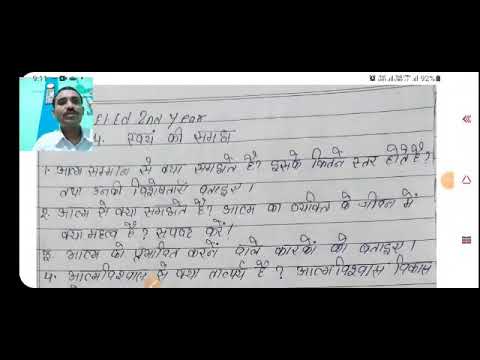 92%
El Ed 2nd Year
4. स्वयं की समझ
1. आत्म सम्मान से क्या समझते है? इसके कितने स्तर होते है?
तथा उनकी विशेषताएँ बताइए।
2. आत्म से क्या समझते है? आत्म का व्यक्ति के जीवन में
क्या महत्व है? स्पष्ट करें।
3. आत्म को प्रभावित करने वाले कारकों को बताइए।
4. आत्मविश्वास से क्या तात्पर्य है? आत्मविश्वास विकास